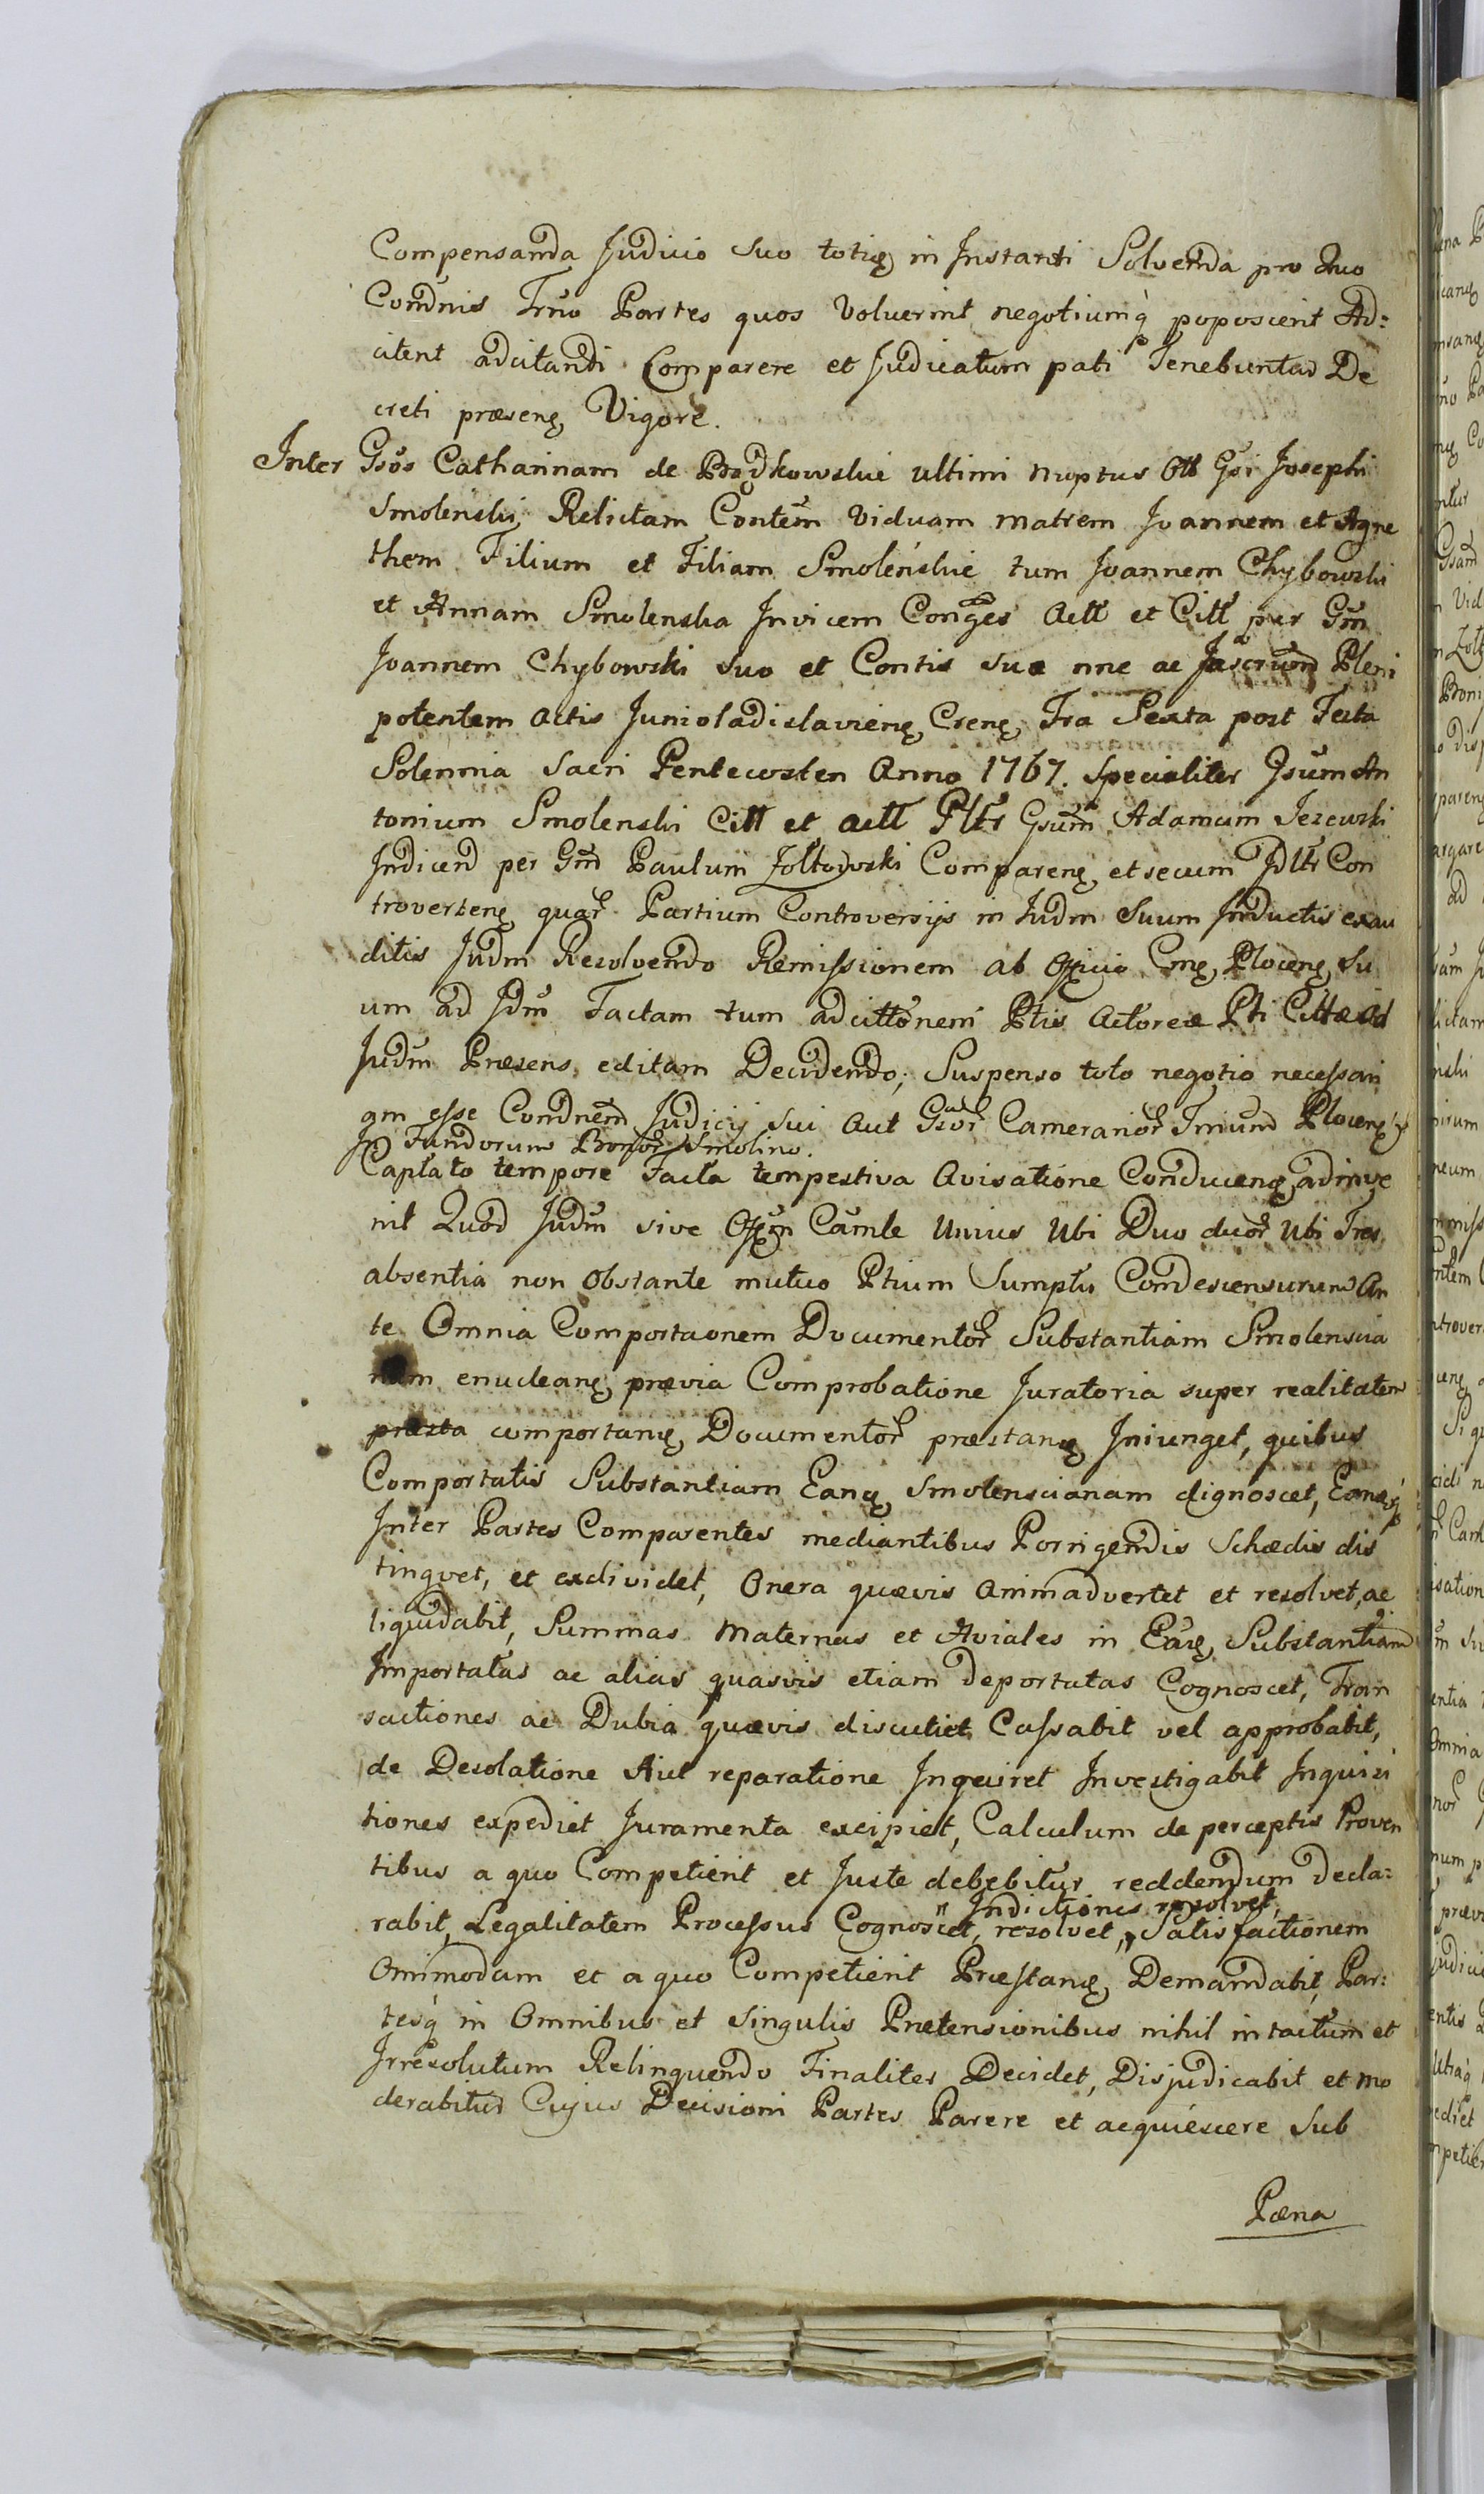 Compensanda Judicio suo totieq in Instanti Solvenda pro Quo
Condnis Trno Partes quos Voluerint negotiumq poposcerit Ad:
citent adcitandi Comparere et Judicatum pati Tenebuntur De
creti præsenę Vigore.
Inter Gsos Catharinam de Brądkowskie ultimi nuptus Oll Gsi Josephi
Smolenski Relictam Contem Viduam matrem Joannem et Agne
them Filium et Filiam Smolenskie tum Joannem Chybowski
et Annam Smolenska Invicem Conges Actt et Citt per Gm
Joannem Chybowski suo et Contis suæ nne ac Pleni
potentem Actis Junioladislavienę Crenę Fra Sexta post Festa
Solennia Sacri Pentecosten Anno 1767. Specialiter Gsum An
tonium Smolenski Citt et actt Pltr Gsum Adamum Jezewski
Indicend per Gm Paulum Zołtowski Comparenę et secum Idltr Con
trovertenę quar Partium Controversijs in Judm Suum Inductis exau
ditis Judm Resolvendo Remissionem ab Officio Cnę Plocenę Su
um ad Idm Factam tum adcittonem Ptis Actoreæ Pti Cittæ ad
Judm Præsens editam Decidendo; Suspenso toto negotio necessari
am esse Condnem Judicij sui aut Gsor Cameranior Trium Plocenę
In Fundorum Bonor Smolino.
Captato tempore Facta tempestiva Avisatione Conducenę adinve
nit Quod Judm sive Offm Camle Unius Ubi Duo duor Ubi Tres
absentia non Obstante mutuo Ptium Sumptu Condescensurum An
te Omnia Comportaonem Documentor Substantiam Smolenscia
nam enucleanę prævia Comprobatione Juratoria super realitatem
comportanę Documentor præstanę Iniunget, quibus
Comportatis Substantiam Eanę Smolenscianam dignoscet, Eamq
Inter Partes Comparentes mediantibus Porrigendis Schædis dis
tingvet, et exdividet, Onera quævis Animadvertet et resolvet, ac
liquidabit, Summas Maternas et Aviales in Eanę Substantiam
Importatas ac alias quasvis etiam deportatas Cognoscet, Tran
sactiones ac Dubia quævis discutiet Cassabit vel approbabit,
de Desolatione Aut reparatione Inqeiret Investigabit Inquisi
tiones expediet Juramenta excipiet, Calculum de perceptis Proven
tibus a quo Competierit et Juste debebitur reddendum Decla:
Indictiones resolvet,
rabit, Legalitatem Processus Cognoscet, resolvet, Satisfactionem
Omimodam et a quo Competierit Præstanę Demandabit, Par:
tesq in Omnibus et Singulis Prætensionibus nihil intactum et
Irresolutum Relinquendo Finaliter Decidet, Disjudicabit et mo
derabitur Cujus Decisioni Partes Parere et acquiescere Sub
Pæna